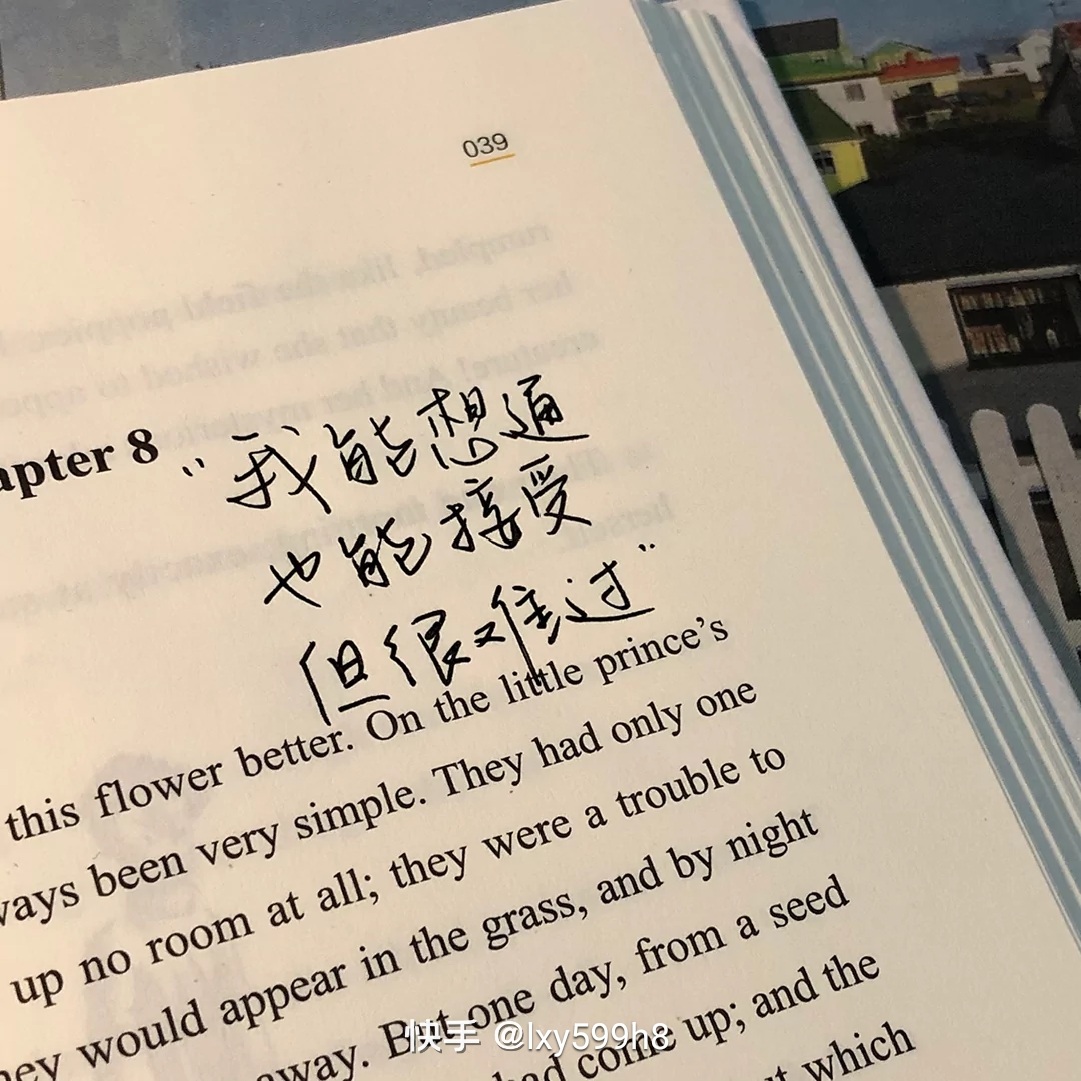 039
apter 8
“我能想通
也能接受
但很难过”
this flower better. On the little prince's
ways been very simple. They had only one
up no room at all; they were a trouble to
hey would appear in the grass, and by night
away. But one day, from a seed
had come up; and the
which
快手 @lxy599h8